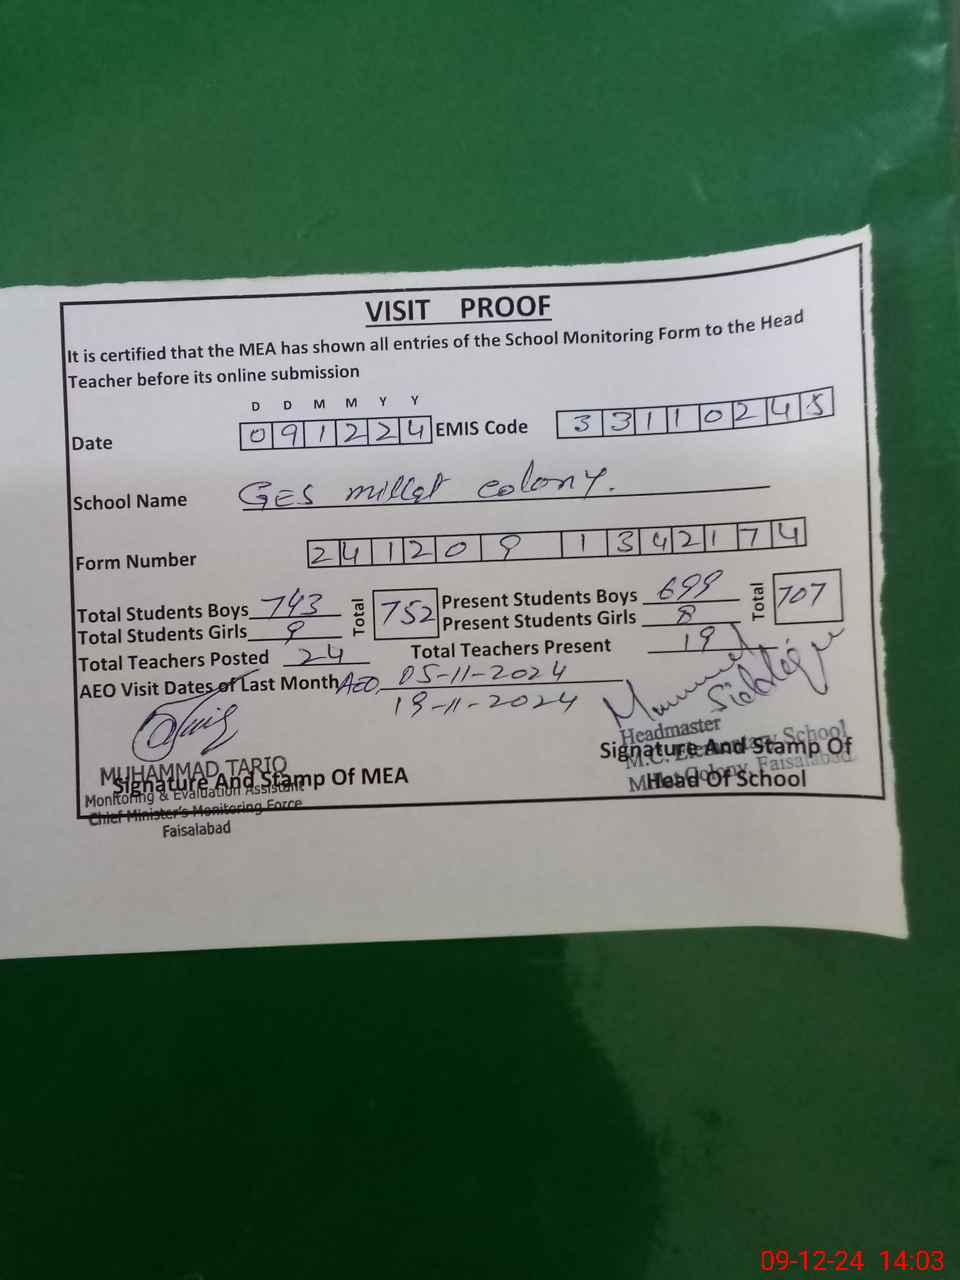 VISIT PROOF
It is certified that the MEA has shown all entries of the School Monitoring Form to the Head
Teacher before its online submission
D D M M Y Y
Date 0 9 1 2 2 4 EMIS Code 3 3 1 1 0 2 4 5
School Name GES millat colony.
Form Number 2 4 1 2 0 9 1 3 4 2 1 7 4
Total Students Boys 743 Total 752 Present Students Boys 699 Total 707
Total Students Girls 9 Present Students Girls 8
Total Teachers Posted 24 Total Teachers Present 19
AEO Visit Dates of Last Month AEO 05-11-2024
19-11-2024
Headmaster
M.C. Elementary School
Signature And Stamp Of
Colony, Faisalabad
Head Of School
MUHAMMAD TARIQ
Signature And Stamp Of MEA
Monitoring & Evaluation Assistant
Chief Minister's Monitoring Force
Faisalabad
09-12-24 14:03